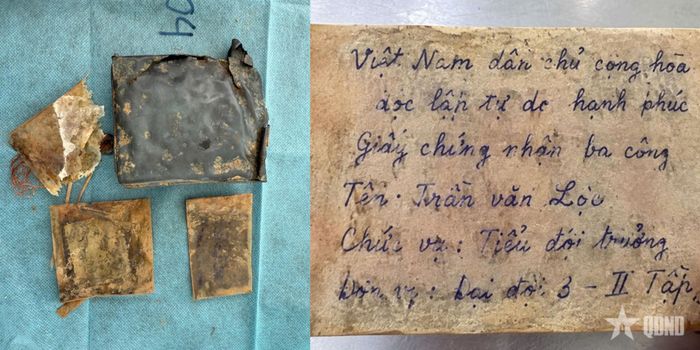 04
Việt Nam dân chủ cộng hòa
độc lập tự do hạnh phúc
Giấy chứng nhận ba công
Tên. Trần văn Lộc
Chức vụ: Tiểu đội trưởng
Đơn vị: Đại đội 3 - II Tập
QĐND